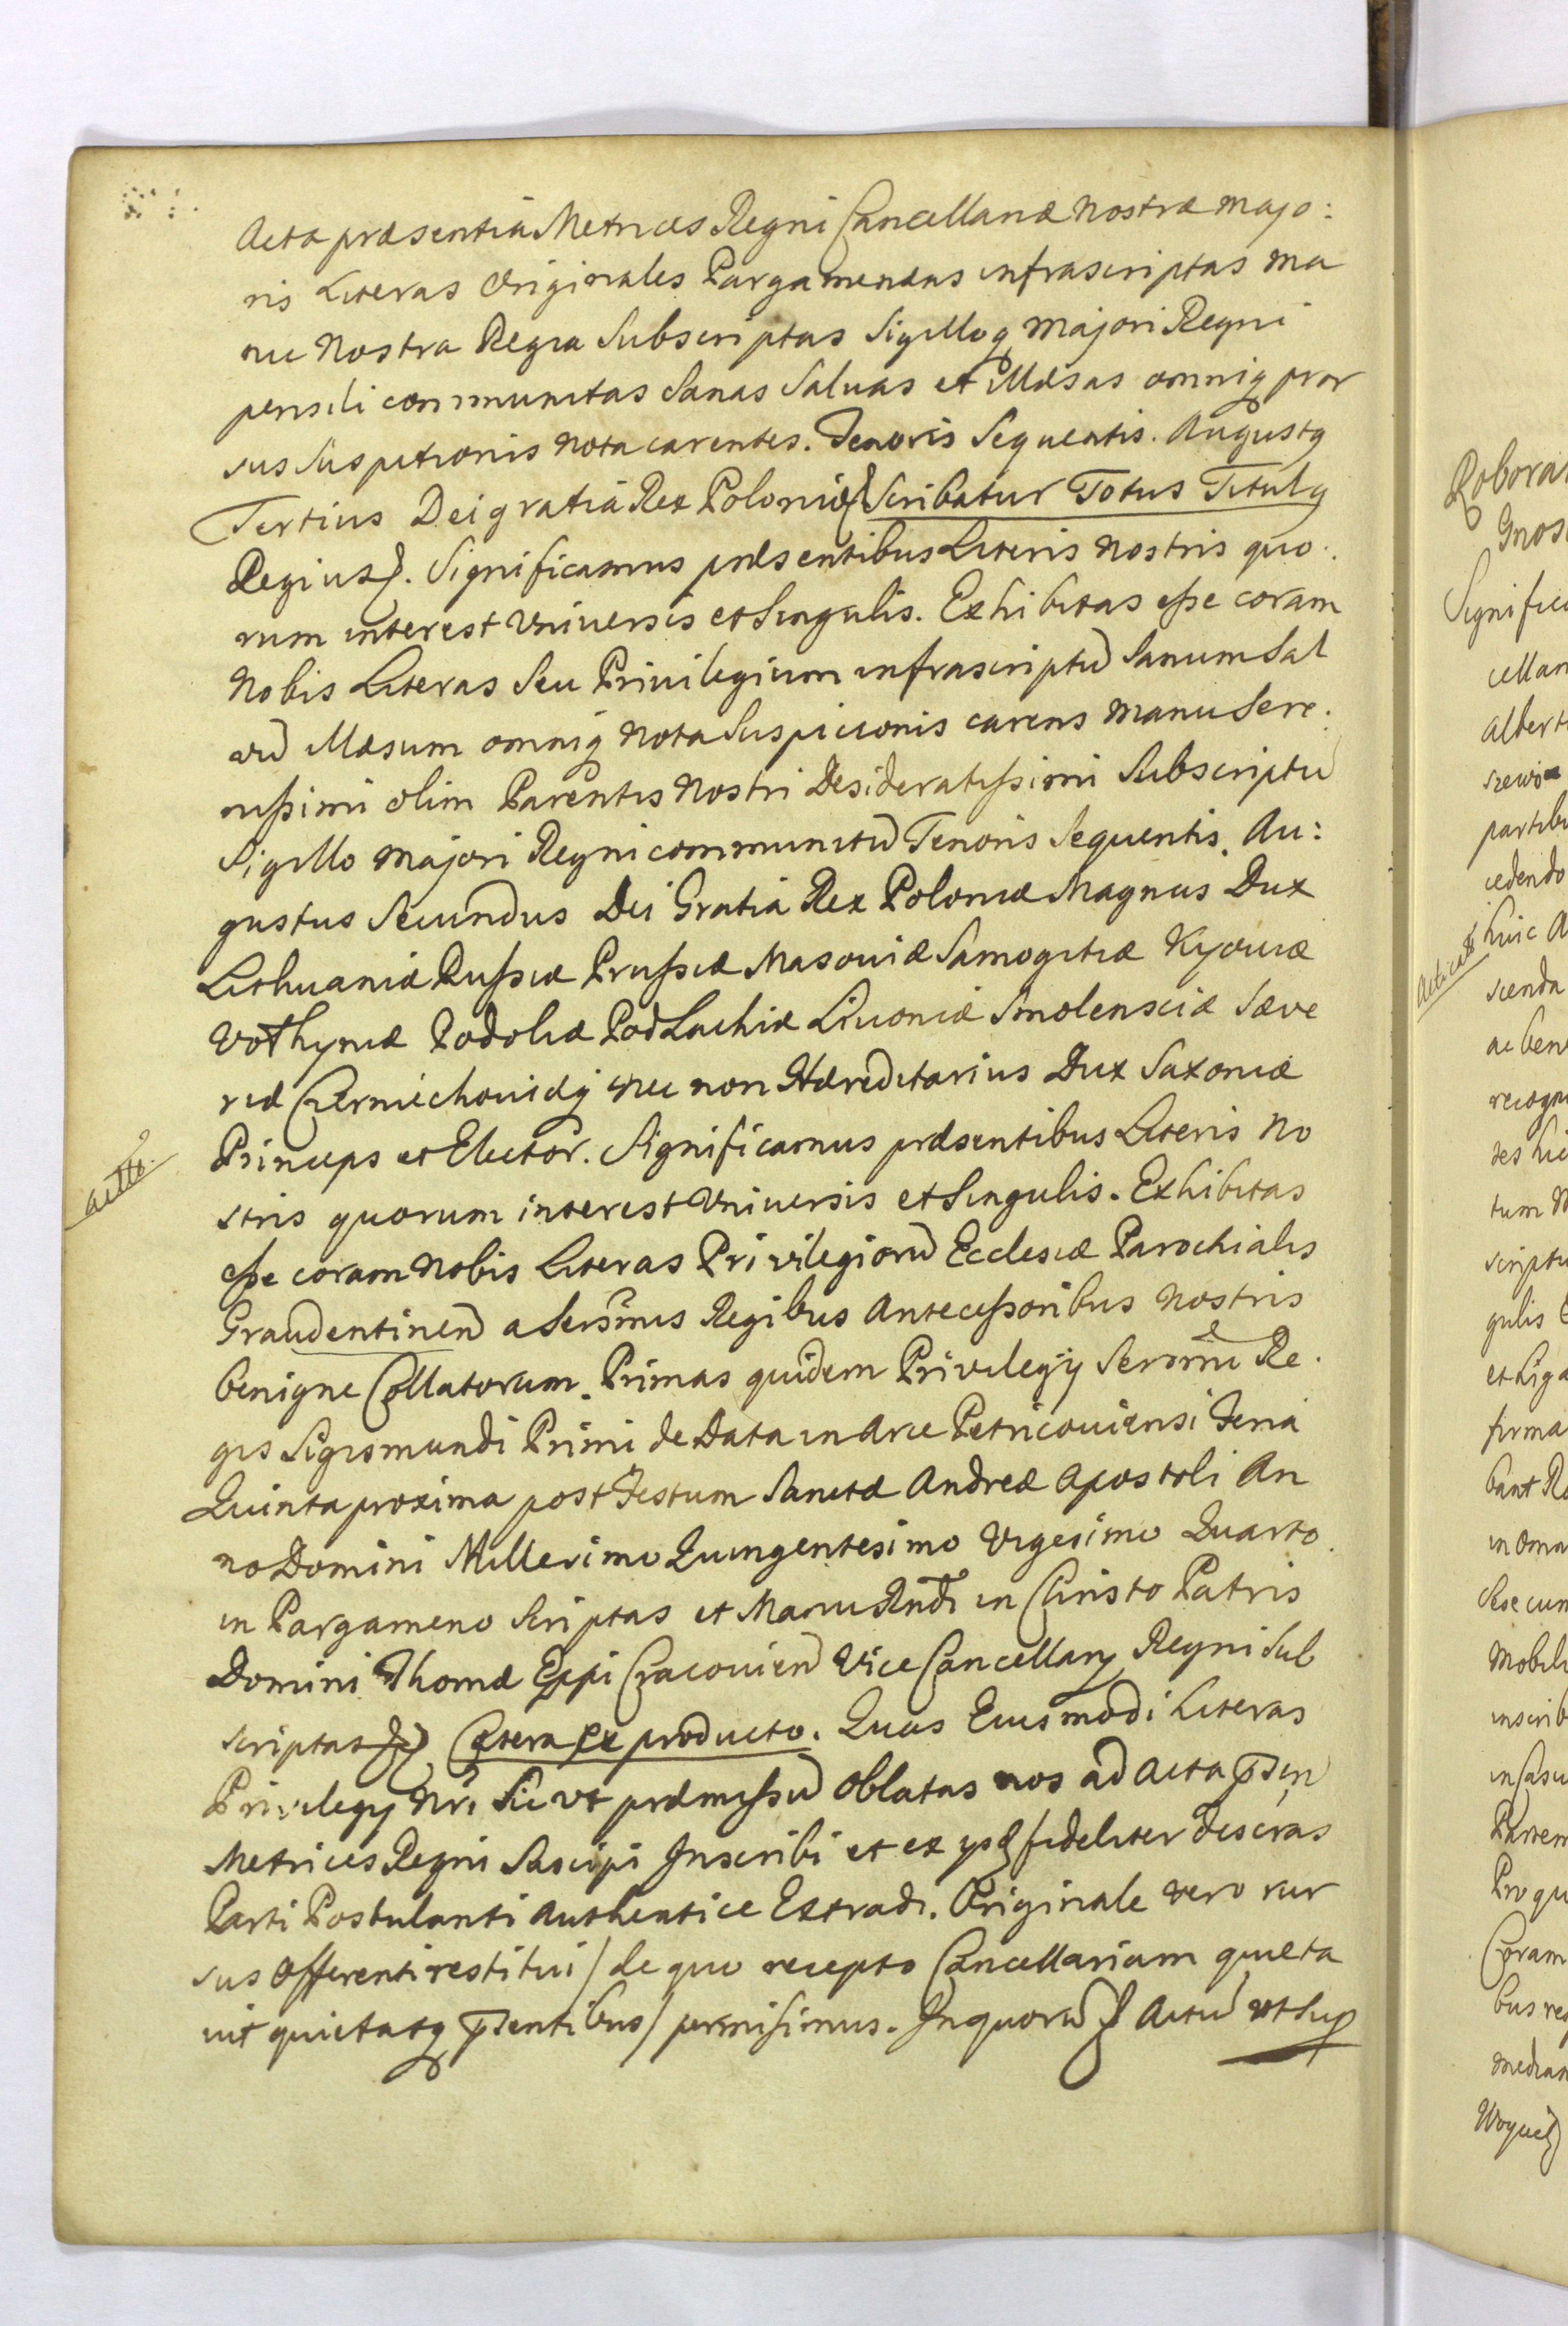 Acta præsentia Metrices Regni Cancellariæ Nostræ Majo:
ris Literas Originales Pargameneas infrascriptas ma
nu Nostra Regia Subscriptas Sigilloq Majori Regni
pensili communitas Sanas Saluas et Illæsas omniq pror
sus Suspitionis nota carentes. Tenoris Sequentis. Augustq
Tertius Dei gratia Rex Poloniæ (Scribatur Totus Titulq
Regius). Significamus præsentibus Literis Nostris quo.
rum interest Vniuersis et Singulis. Exhibitas eſse coram
Nobis Literas Seu Priuilegium infrascriptũ Sanum Sal
vũ Illæsum omniq Nota Suspicionis carens Manu Sere.
niſsimi olim Parentis Nostri Desideratiſsimi Subscriptũ
Sigillo Majori Regni communitũ Tenoris Sequentis. Au:
gustus Secundus Dei Gratia Rex Poloniæ Magnus Dux
Lithuaniæ Ruſsiæ Pruſsiæ Masouiæ Samogitiæ Kyouiæ
Volhyniæ Podoliæ PodLachiæ Liuoniæ Smolensciæ Sæve
riæ Czerniechouiæq nec non Hæreditarius Dux Saxoniæ
Princeps et Elector. Significamus præsentibus Literis No
stris quorum interest Vniuersis et Singulis. Exhibitas
eſse coram Nobis Literas Privilegiorũ Ecclesiæ Parochialis
Graudentinen̄ a Serẽmis Regibus Antecessoribus Nostris
benigne Collatorum. Primas quidem Privilegij Serẽmi Re.
gis Sigismundi Primi de Data in Arce Petricouiensi Feria
Quinta proxima post Festum Sanctæ Andreæ Apostoli An
no Domini Millesimo Quingentesimo Vigesimo Quarto.
in Pargameno Scriptas et Manu Rndi in Christo Patris
Domini Thomæ Eppi Cracouien̄ Vice Cancellarij Regni Sub
scriptas &c) Cætera ex producto. Quas Eiusmodi Literas
Privilegij Nri Sic vt præmiſsũ oblatas nos ad Acta p̄sen
Metrices Regni Suscipi Inscribi et ex ijsd fideliter descras
Parti Postulanti Authentice Extradi. Originale vero rur
sus Offerenti restitui / de quo recepto Cancellariam quieta
uit quietatq p̄sentibus / permisimus. In quorũ &c Actũ vt Sup
actto.
Roborar
Gnos
Signific
cellar
Albert
szewi
partib
cedendo
huic A
Acticat
scenda
ac ben
recogn
tes hic
tum
scriptu
gulis
et Liga
firma
bant R
in omn
Sese cum
Mobili
inscrib
in Casu
Partem
Pro qu
Coram
bus res
median
Woyciec